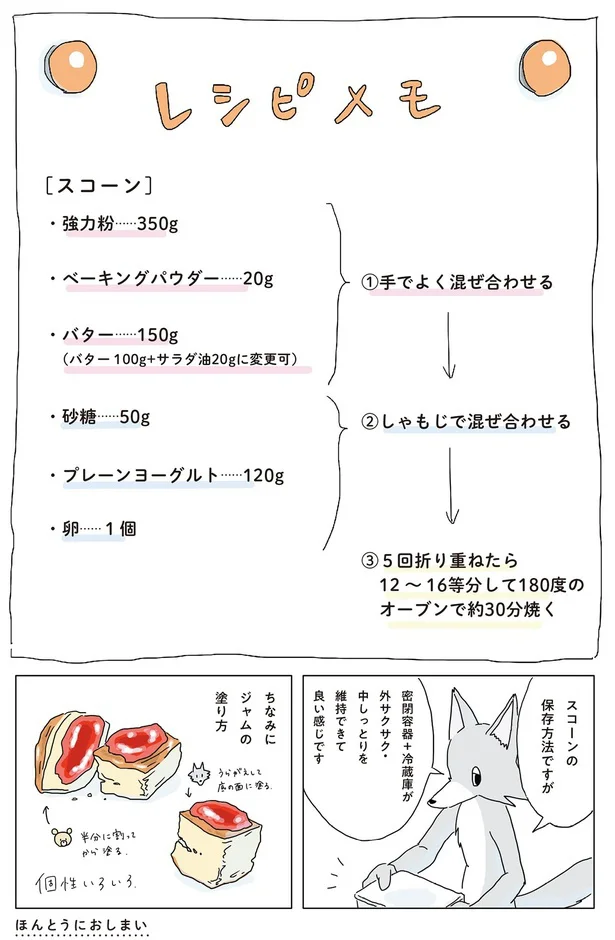 レシピメモ
［スコーン］
・強力粉……350g
・ベーキングパウダー……20g
・バター……150g
（バター100g+サラダ油20gに変更可）
①手でよく混ぜ合わせる
・砂糖……50g
・プレーンヨーグルト……120g
・卵……1個
②しゃもじで混ぜ合わせる
③5回折り重ねたら
12～16等分して180度の
オーブンで約30分焼く
スコーンの
保存方法ですが
密閉容器+冷蔵庫が
外サクサク・
中しっとりを
維持できて
良い感じです
ちなみに
ジャムの
塗り方
うらがえして
底の面に塗る.
半分に割って
から塗る.
個性いろいろ.
ほんとうにおしまい